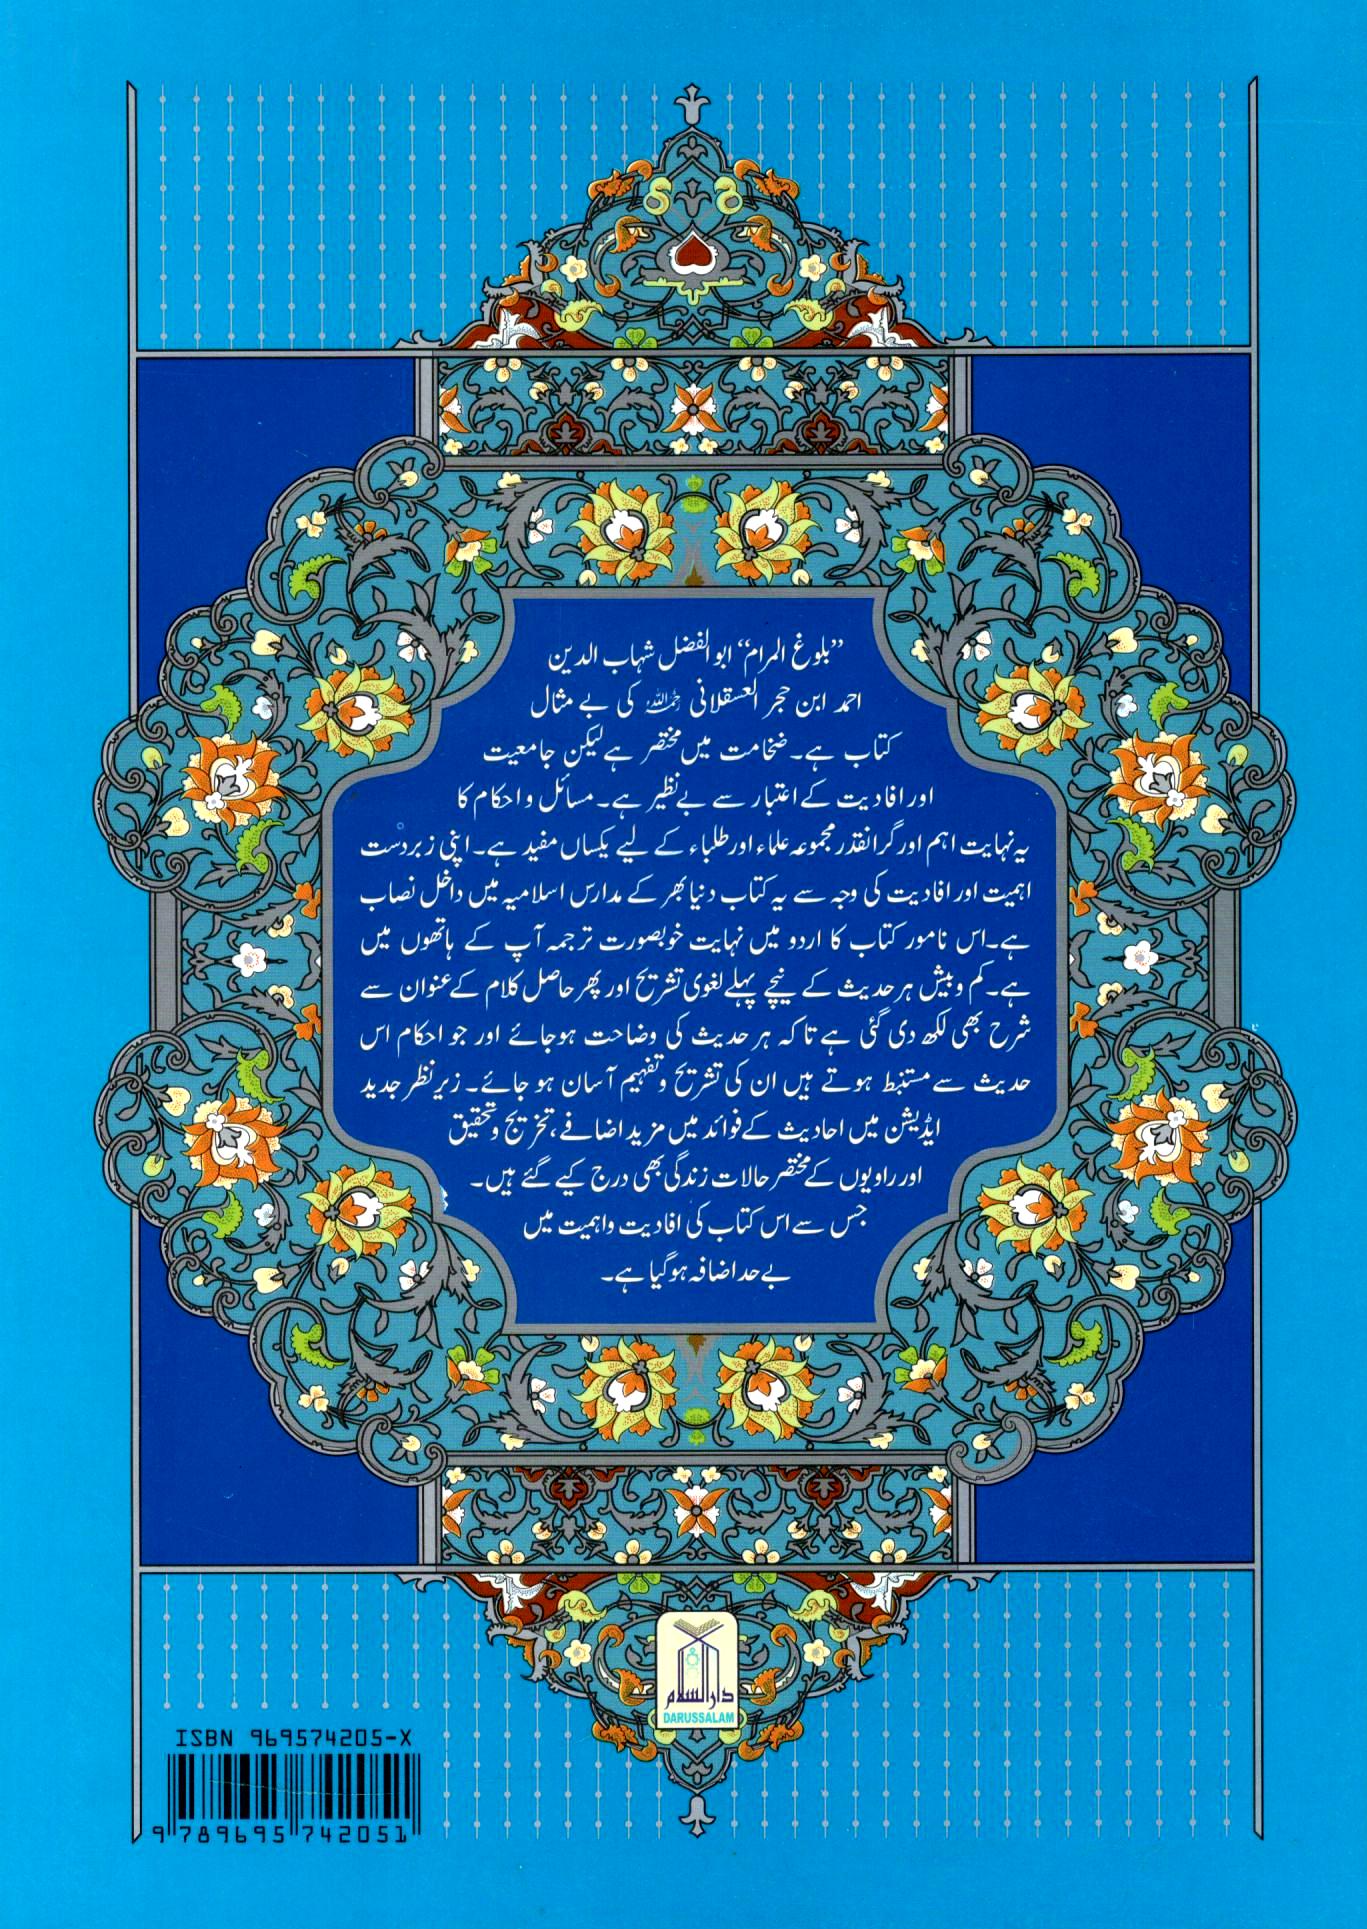 ”بلوغ المرام“ ابوالفضل شہاب الدین
احمد ابن حجر العسقلانی رحمہ اللہ کی بے مثال
کتاب ہے۔ ضخامت میں مختصر ہے لیکن جامعیت
اور افادیت کے اعتبار سے بے نظیر ہے۔ مسائل و احکام کا
یہ نہایت اہم اور گرانقدر مجموعہ علماء اور طلباء کے لیے یکساں مفید ہے۔ اپنی زبردست
اہمیت اور افادیت کی وجہ سے یہ کتاب دنیا بھر کے مدارس اسلامیہ میں داخل نصاب
ہے۔ اس نامور کتاب کا اردو میں نہایت خوبصورت ترجمہ آپ کے ہاتھوں میں
ہے۔ کم و بیش ہر حدیث کے نیچے پہلے لغوی تشریح اور پھر حاصل کلام کے عنوان سے
شرح بھی لکھ دی گئی ہے تاکہ ہر حدیث کی وضاحت ہوجائے اور جو احکام اس
حدیث سے مستنبط ہوتے ہیں ان کی تشریح و تفہیم آسان ہو جائے۔ زیر نظر جدید
ایڈیشن میں احادیث کے فوائد میں مزید اضافے، تخریج و تحقیق
اور راویوں کے مختصر حالات زندگی بھی درج کیے گئے ہیں۔
جس سے اس کتاب کی افادیت و اہمیت میں
بے حد اضافہ ہوگیا ہے۔
دارالسلام
DARUSSALAM
ISBN 969574205-X
9 789695 742051